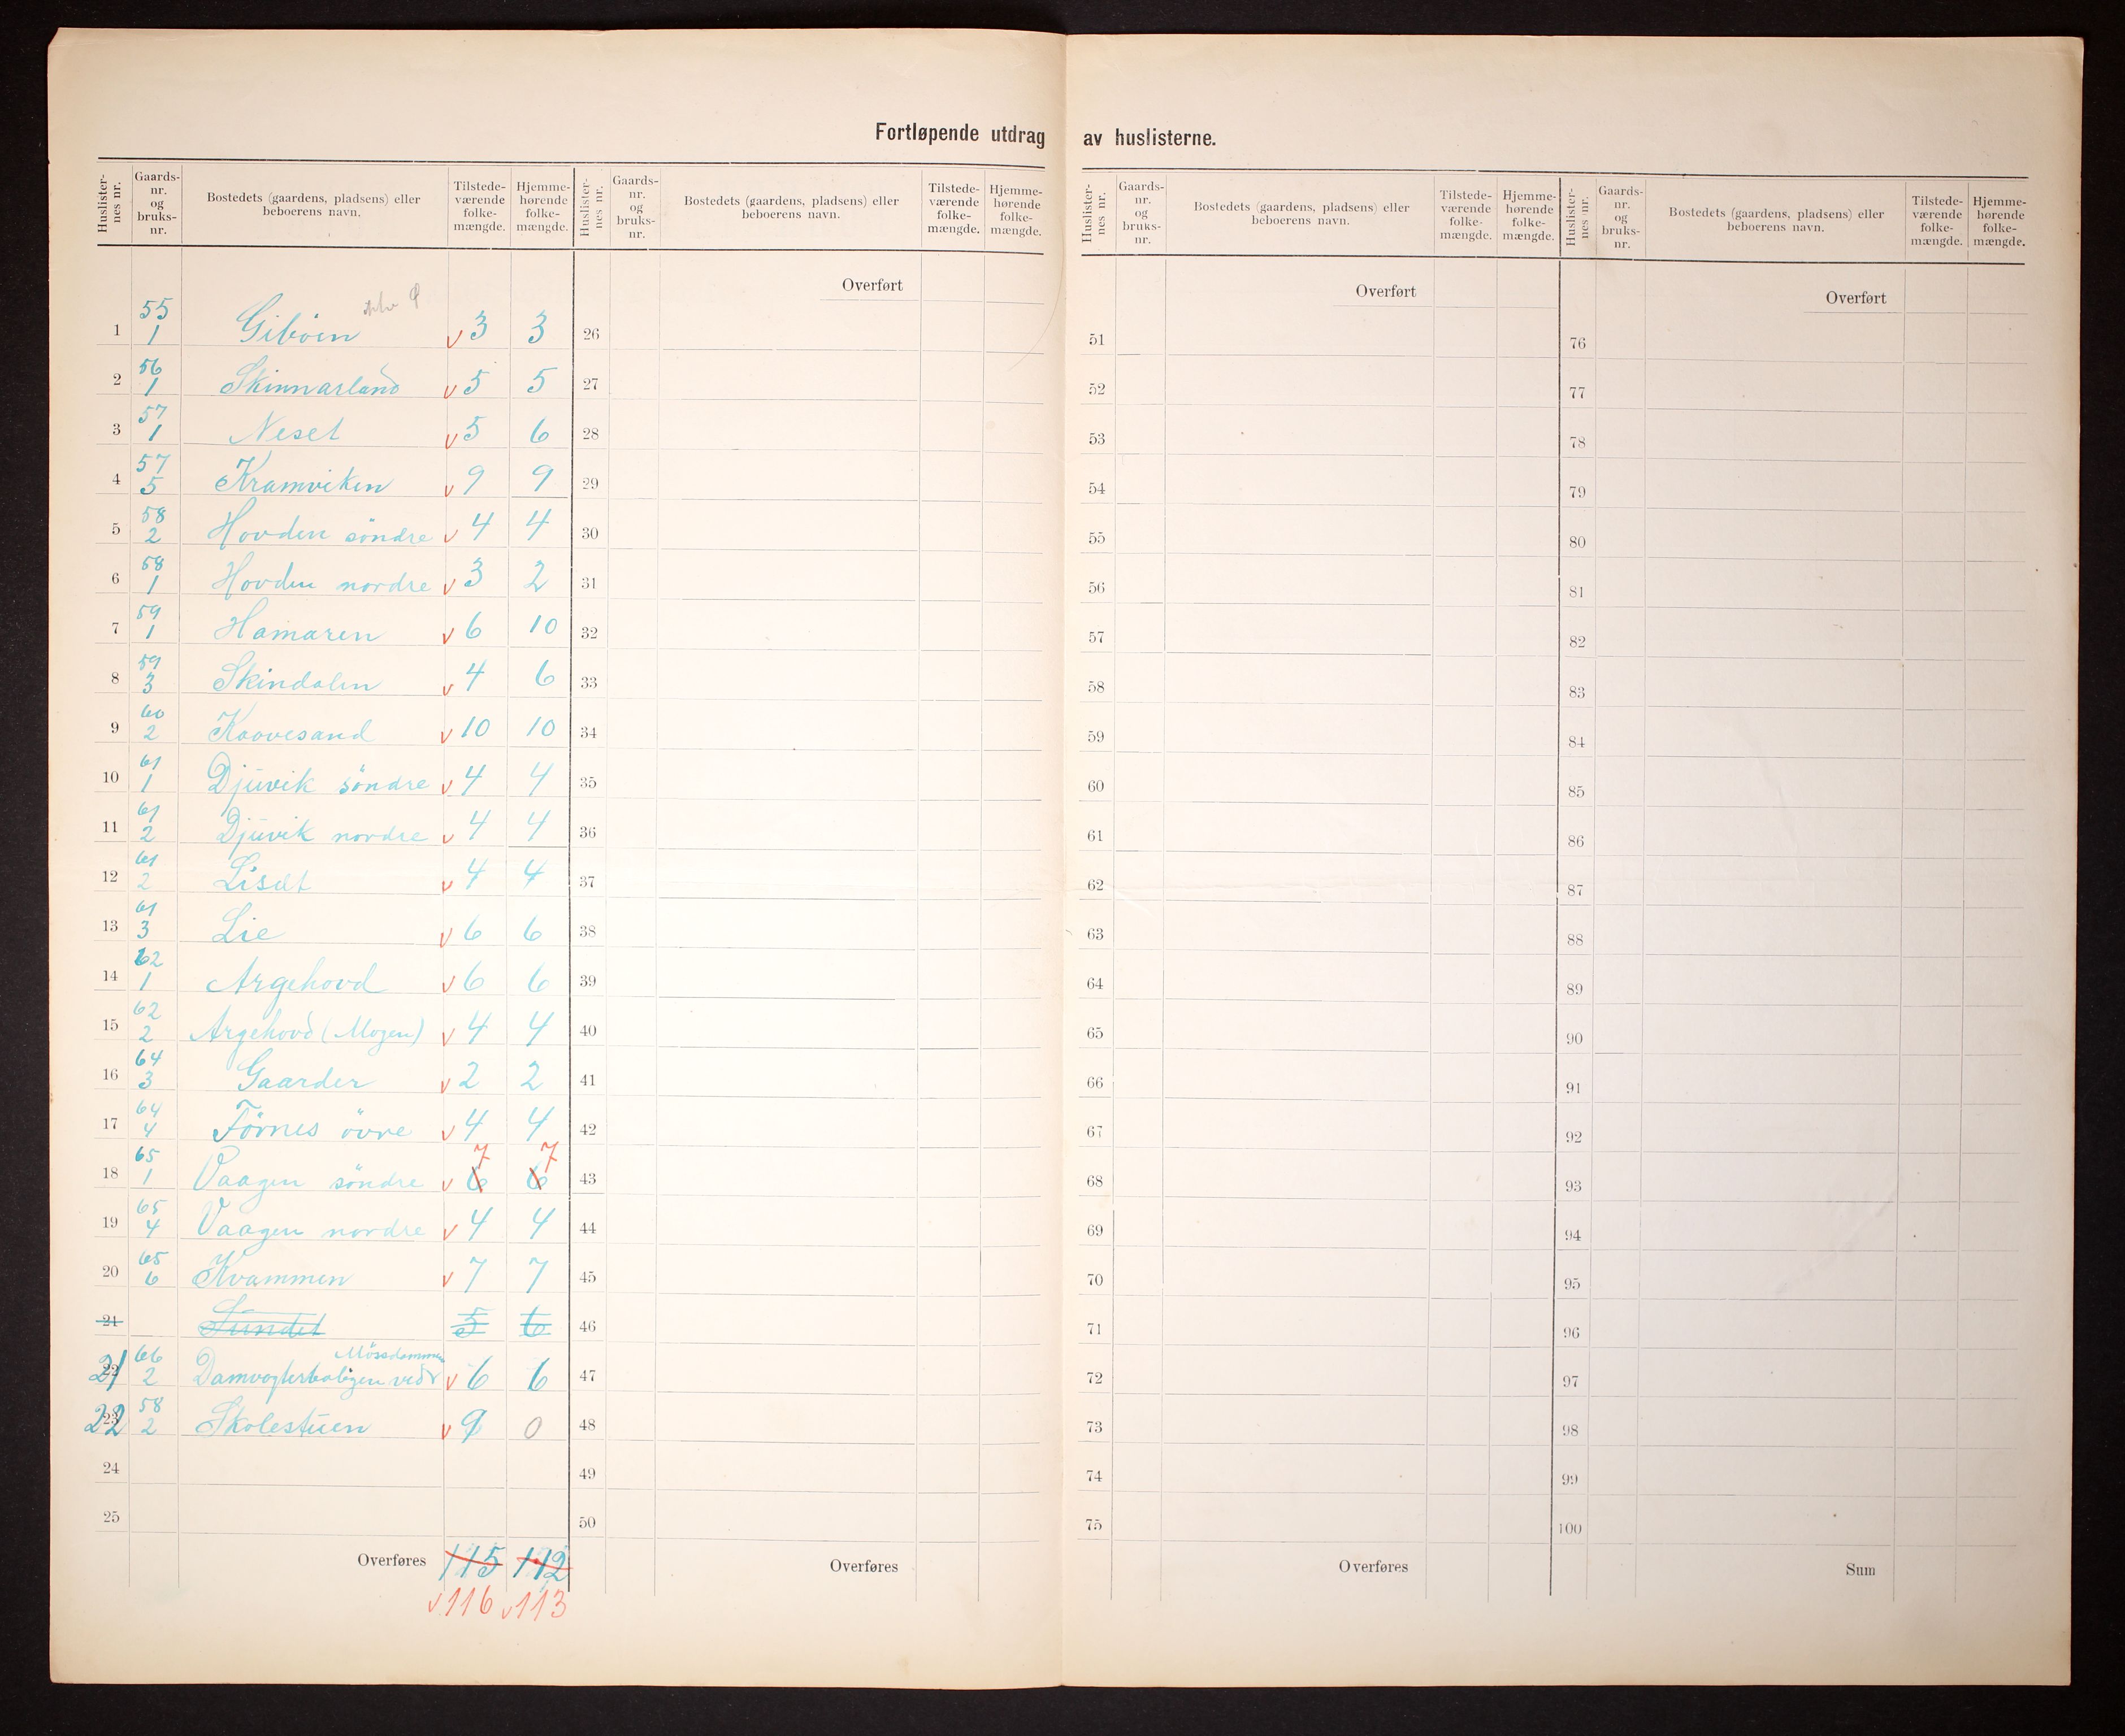 Fortløpende utdrag av huslisterne.
Huslisternes nr. Gaardsnr. og bruksnr. Bostedets (gaardens, pladsens) eller beboerens navn. Tilstedeværende folkemængde. Hjemmehørende folkemængde. Huslisternes nr. Gaardsnr. og bruksnr. Bostedets (gaardens, pladsens) eller beboerens navn. Tilstedeværende folkemængde. Hjemmehørende folkemængde. Huslisternes nr. Gaardsnr. og bruksnr. Bostedets (gaardens, pladsens) eller beboerens navn. Tilstedeværende folkemængde. Hjemmehørende folkemængde. Huslisternes nr. Gaardsnr. og bruksnr. Bostedets (gaardens, pladsens) eller beboerens navn. Tilstedeværende folkemængde. Hjemmehørende folkemængde.
Overført Overført Overført
1 55 1 Giböen v 3 3 26 51 76
2 56 1 Skinnarland v 5 5 27 52 77
3 57 1 Neset v 5 6 28 53 78
4 57 5 Kramviken v 9 9 29 54 79
5 58 2 Hovden söndre v 4 4 30 55 80
6 58 1 Hovden nordre v 3 2 31 56 81
7 59 1 Hamaren v 6 10 32 57 82
8 59 3 Skindalen v 4 6 33 58 83
9 60 2 Kaavesand v 10 10 34 59 84
10 61 1 Djuvik söndre v 4 4 35 60 85
11 61 2 Djuvik nordre v 4 4 36 61 86
12 61 2 Liset v 4 4 37 62 87
13 61 3 Lie v 6 6 38 63 88
14 62 1 Argehovd v 6 6 39 64 89
15 62 2 Argehovd (Mogen) v 4 4 40 65 90
16 64 3 Gaarder v 2 2 41 66 91
17 64 4 Förnes övre v 4 4 42 67 92
18 65 1 Vaagen söndre v 6 7 6 7 43 68 93
19 65 4 Vaagen nordre v 4 4 44 69 94
20 65 6 Kvammen v 7 7 45 70 95
21 Sundet 5 6 46 71 96
22 21 66 2 Damvogterboligen ved Mössdammen v 6 6 47 72 97
23 22 58 2 Skolestuen v 9 0 48 73 98
24 49 74 99
25 50 75 100
Overføres 115 112 Overføres Overføres Sum
v 116 v 113